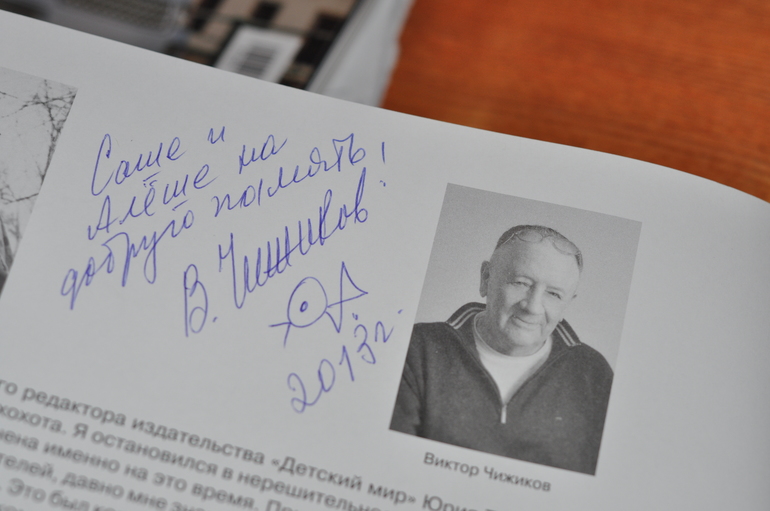 Саше и
Алёше на
добрую память!
В. Чижиков
2013г.
Виктор Чижиков
го редактора издательства «Детский мир» Юрия
хохота. Я остановился в нерешительно
чена именно на это время.
телей, давно мне
. Это был